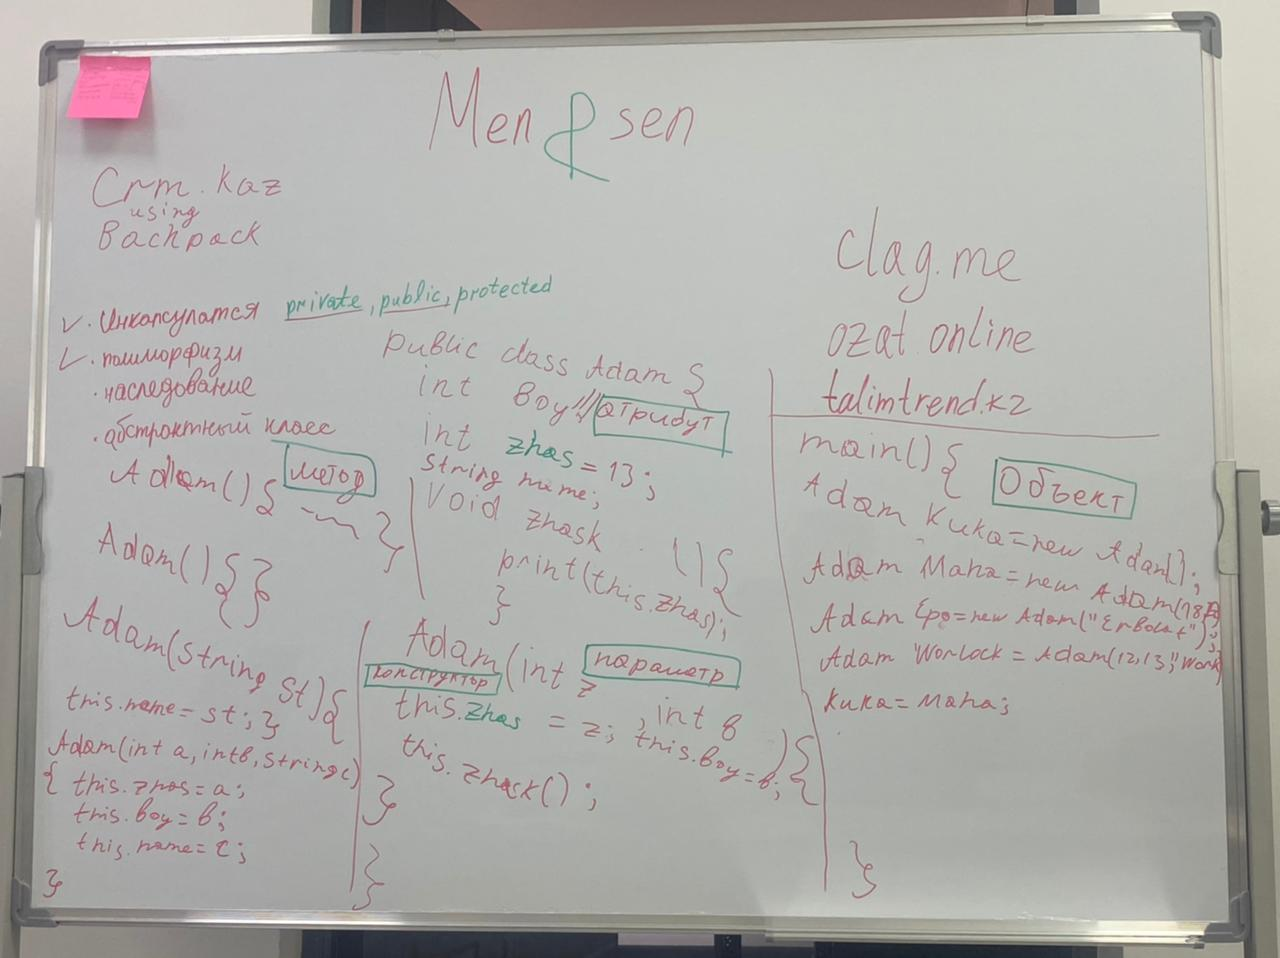 Men & sen
Crm.kaz
using
Backpack
clag.me
ozat.online
talimtrend.kz
Инкапсулатся private, public, protected
полиморфизм
наследование
абстрактный класс
Adam(){ метод
}
Adam(){}
Adam(string st){
this.name=st; }
Adam(int a, int b, string c)
{ this.zhas=a;
this.boy=b;
this.name=c;
}
public class Adam {
int boy атрибут
int zhas=13;
string name;
Void zhask (){
print(this.zhas);
}
Adam(int z параметр
конструктор
, int b
){
this.zhas = z; this.boy=b;
this.zhask();
}
}
main(){ Объект
Adam Kuka=new Adam();
Adam Maha=new Adam(18
Adam Epo=new Adam("Erbolat");
Adam Worlock = Adam(12,13,"Work
Kuka=Maha;
}